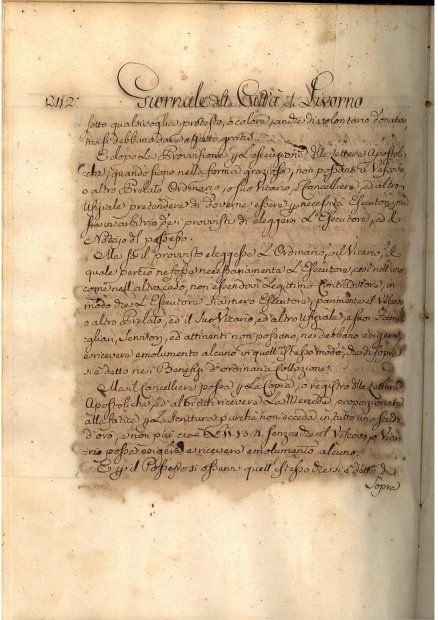 242. Giornale della Città di Livorno
sotto qualsivoglia pretesto, ò colore, anche di volontario donativo,
ma si debbano dare affatto gratis.
E dopo la Provisione, p l'esecuzione delle lettere Apostoli-
che, quando siano nella forma graziosa, non possano il Vescovo,
ò altro Prelato Ordinario, ò suo Vicario, ò Cancelliere, ed altro
Ufiziale pretendere di dovere essere p necessità Esecutori, ma
sia in arbitrio de i provvisti di eleggersi l'Esecutore, ed il
Notajo del possesso.
Ma se il provvisto eleggesse l'Ordinario, ò il Vicario, il
quale perciò ne fosse necessariamente l'Esecutore, così nell'uno
come nell'altro caso, non essendovi legittimo Contradittore, in
modo che l'Esecutore sia mero Esecutore, parimente il Vescovo,
ò altro Prelato, ed il Suo Vicario, ed altro Ufiziale, e suoi Fami-
gliari, Servitori, ed attinenti non possano, ne debbano esigere,
e ricevere emolumento alcuno in quell'istesso modo, che di sopra
si è detto ne i Benefizj d'ordinaria Collazione.
Ma il Cancelliere possa p la Copia, ò registro delle lettere
Apostoliche, ed altri atti ricevere la Mercede proporzionata
alla fatica p la Scrittura purchè non ecceda in tutto uno scudo
d'oro, e non più cioè 11.13.4 senza che il Vescovo, ò Vica-
rio possa esigere e ricevere emolumento alcuno.
E p il Possesso si osservi quell'istesso che si è detto di
Sopra